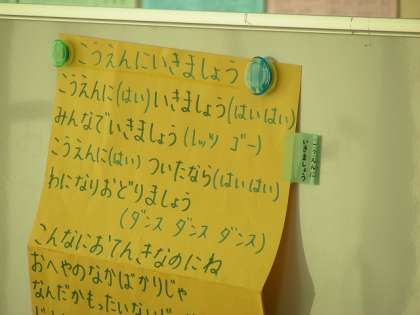 こうえんにいきましょう
こうえんに(はい)いきましょう(はいはい)
みんなでいきましょう(レッツ ゴー)
こうえんに(はい) ついたなら(はいはい)
わになりおどりましょう
(ダンス ダンス ダンス)
こんなにおてんきなのにね
おへやのなかばかりじゃ
なんだかもったいない
こうえんに
いきましょう